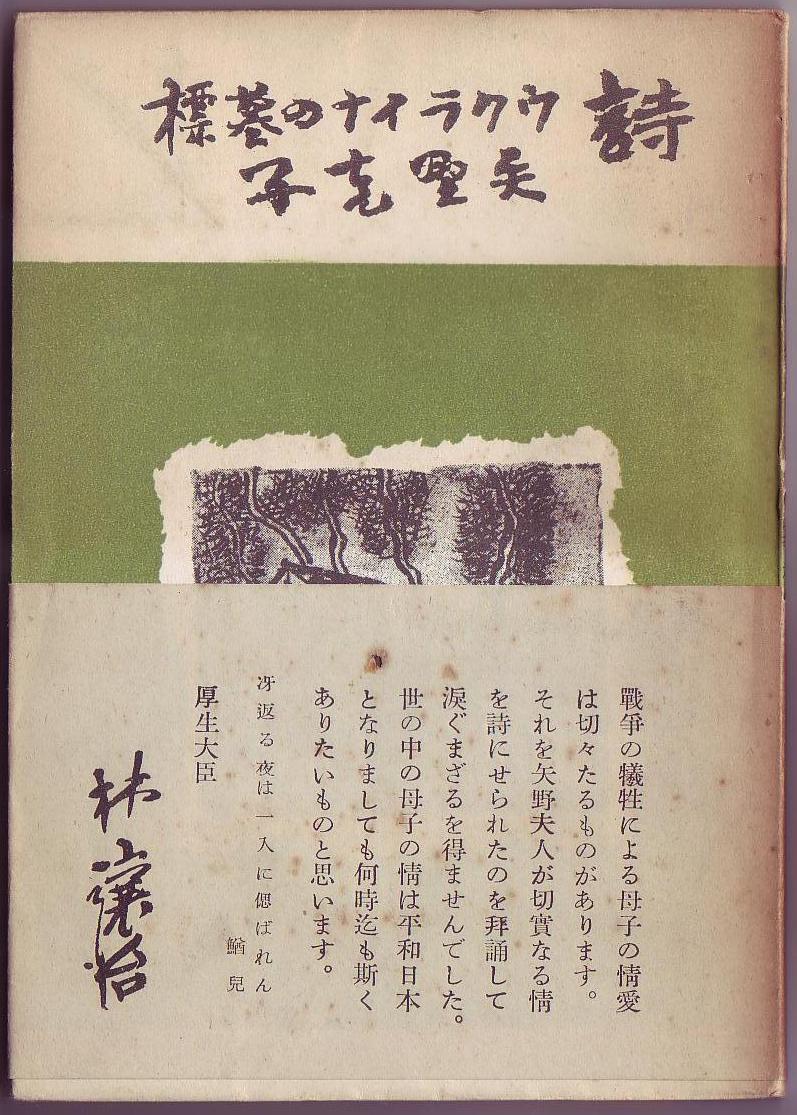 詩 ウクライナの墓標
矢野克子
戰爭の犧牲による母子の情愛
は切々たるものがあります。
それを矢野夫人が切實なる情
を詩にせられたのを拜誦して
淚ぐまざるを得ませんでした。
世の中の母子の情は平和日本
となりましても何時迄も斯く
ありたいものと思います。
冴返る夜は一入に偲ばれん
鰌兒
厚生大臣
林讓治